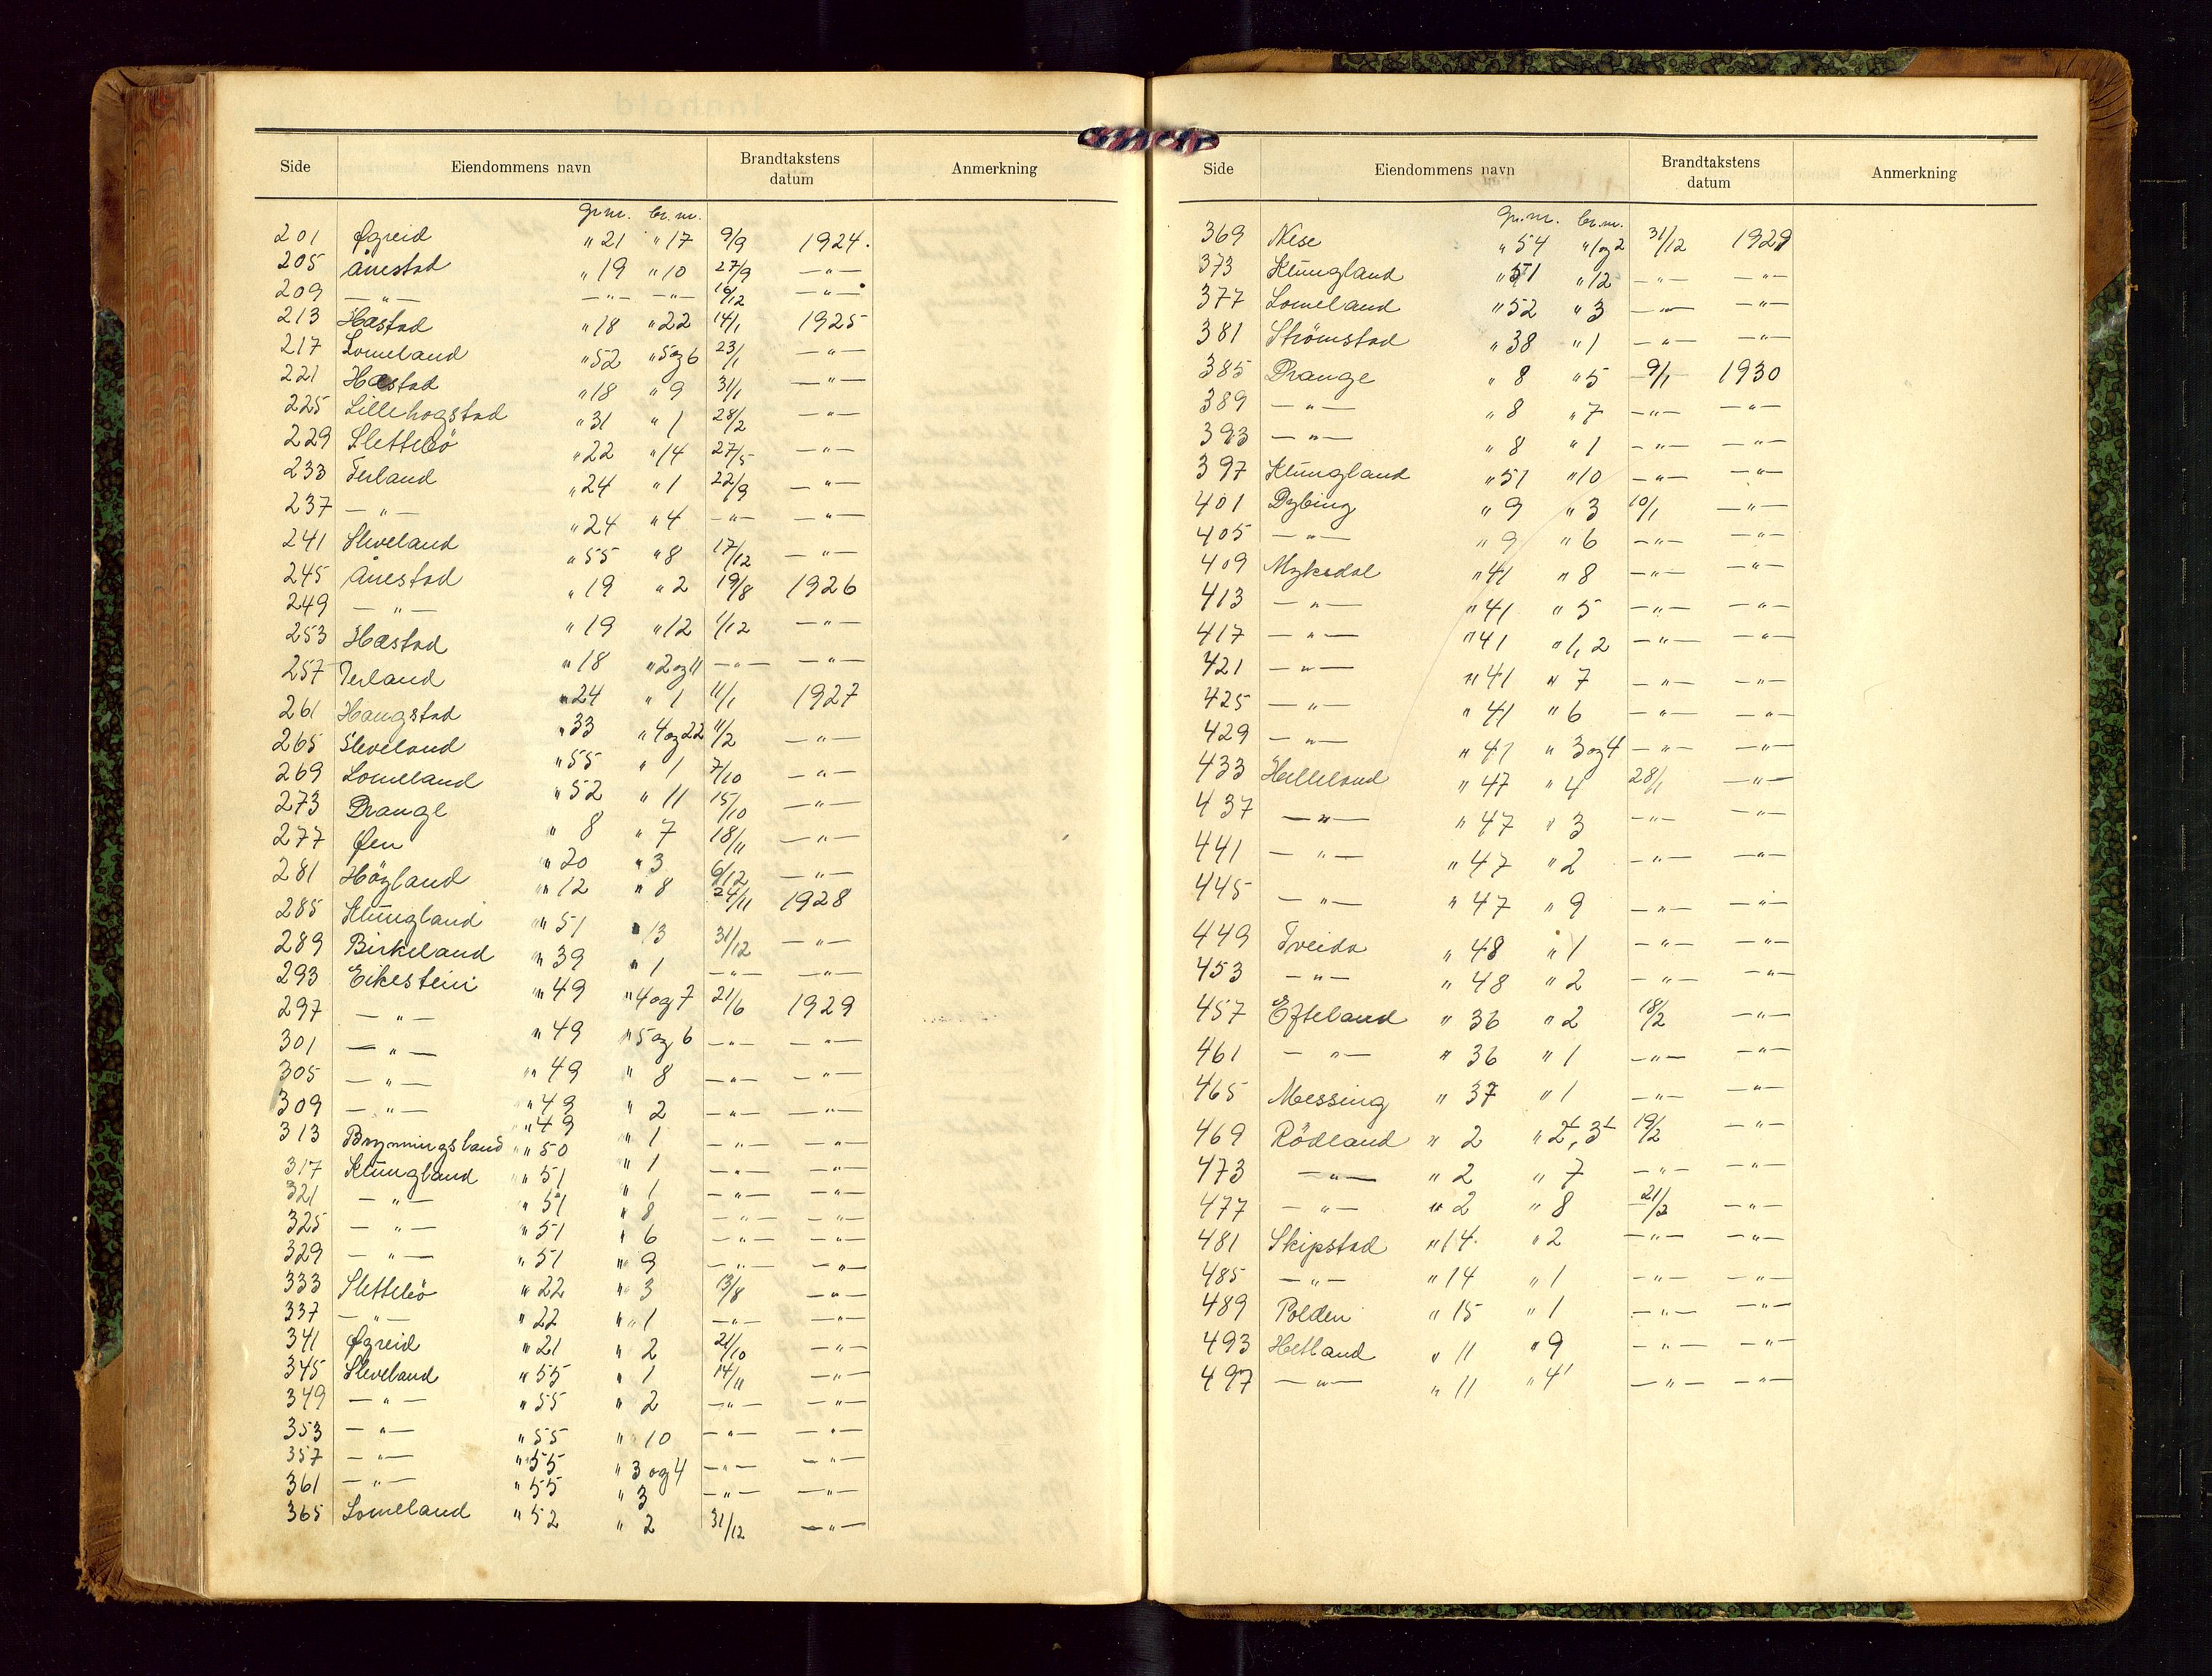 Side Eiendommens navn Brandtakstens datum Anmerkning
gr.nr. br.nr.
201 Øgreid " 21 " 17 9/9 1924.
205 Ånestad " 19 " 10 27/9 — " —
209 — " — — " — — " — 16/12 — " —
213 Hæstad " 18 " 22 14/1 1925
217 Lomeland " 52 " 5 og 6 23/1 — " —
221 Hæstad " 18 " 9 31/1 — " —
225 Lillehogstad " 31 " 1 28/2 — " —
229 Slettebö " 22 " 14 27/5 — " —
233 Terland " 24 " 1 22/9 — " —
237 — " — " 24 " 4 — " — — " —
241 Sleveland " 55 " 8 17/12 — " —
245 Ånestad " 19 " 2 19/8 1926
249 — " — " 19 " 12 1/12 — " —
253 Hæstad " 18 " 2 og 11 — " — — " —
257 Terland " 24 " 1 11/1 1927
261 Haugstad " 33 " 4 og 22 11/2 — " —
265 Sleveland " 55 " 1 7/10 — " —
269 Lomeland " 52 " 11 15/10 — " —
273 Drange " 8 " 7 18/11 — " —
277 Øen " 20 " 3 6/12 — " —
281 Högland " 12 " 8 24/11 1928
285 Klungland " 51 " 13 31/12 — " —
289 Birkeland " 39 " 1 — " — — " —
293 Eikestein " 49 " 4 og 7 21/6 1929
297 — " — " 49 " 5 og 6 — " — — " —
301 — " — " 49 " 8 — " — — " —
305 — " — " 49 " 2 — " — — " —
309 — " — " 49 " 1 — " — — " —
313 Brynningsland " 50 " 1 — " — — " —
317 Klungland " 51 " 1 — " — — " —
321 — " — " 51 " 8 — " — — " —
325 — " — " 51 " 6 — " — — " —
329 — " — " 51 " 9 — " — — " —
333 Slettebö " 22 " 3 13/8 — " —
337 — " — " 22 " 1 — " — — " —
341 Øgreid " 21 " 2 21/10 — " —
345 Sleveland " 55 " 1 14/11 — " —
349 — " — " 55 " 2 — " — — " —
353 — " — " 55 " 10 — " — — " —
357 — " — " 55 " 3 og 4 — " — — " —
361 — " — " 55 " 3 — " — — " —
365 Lomeland " 52 " 2 31/12 — " —
Side Eiendommens navn Brandtakstens datum Anmerkning
gr.nr. br.nr.
369 Nese " 54 " 1 og 2 31/12 1929
373 Klungland " 51 " 12 — " — — " —
377 Lomeland " 52 " 3 — " — — " —
381 Strömstad " 38 " 1 — " — — " —
385 Drange " 8 " 5 9/1 1930
389 — " — " 8 " 7 — " — — " —
393 — " — " 8 " 1 — " — — " —
397 Klungland " 51 " 10 — " — — " —
401 Dybing " 9 " 3 10/1 — " —
405 — " — " 9 " 6 — " — — " —
409 Myksdal " 41 " 8 — " — — " —
413 — " — " 41 " 5 — " — — " —
417 — " — " 41 " 1, 2 — " — — " —
421 — " — " 41 " 7 — " — — " —
425 — " — " 41 " 6 — " — — " —
429 — " — " 41 " 3 og 4 — " — — " —
433 Helleland " 47 " 4 28/1 — " —
437 — " — " 47 " 3 — " — — " —
441 — " — " 47 " 2 — " — — " —
445 — " — " 47 " 9 — " — — " —
449 Tveida " 48 " 1 — " — — " —
453 — " — " 48 " 2 — " — — " —
457 Efteland " 36 " 2 18/2 — " —
461 — " — " 36 " 1 — " — — " —
465 Messing " 37 " 1 — " — — " —
469 Rödland " 2 " 2, 3 19/2 — " —
473 — " — " 2 " 7 — " — — " —
477 — " — " 2 " 8 21/2 — " —
481 Skipstad " 14 " 2 — " — — " —
485 — " — " 14 " 1 — " — — " —
489 Polden " 15 " 1 — " — — " —
493 Hetland " 11 " 9 — " — — " —
497 — " — " 11 " 4 — " — — " —